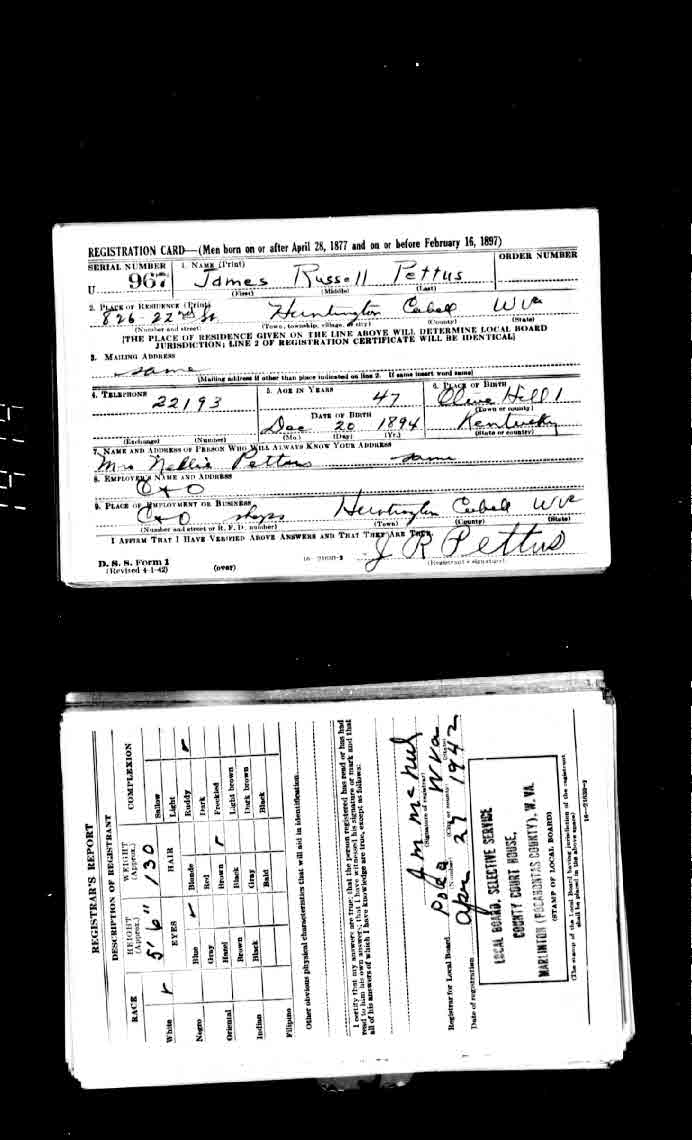 REGISTRATION CARD—(Men born on or after April 28, 1877 and on or before February 16, 1897)
SERIAL NUMBER 1. NAME (Print) ORDER NUMBER
U 967 James Russell Pettus
(First) (Middle) (Last)
2. PLACE OF RESIDENCE (Print)
826 - 22nd St Huntington Cabell W Va
(Number and street) (Town, township, village, or city) (County) (State)
[THE PLACE OF RESIDENCE GIVEN ON THE LINE ABOVE WILL DETERMINE LOCAL BOARD
JURISDICTION; LINE 2 OF REGISTRATION CERTIFICATE WILL BE IDENTICAL]
3. MAILING ADDRESS
same
[Mailing address if other than place indicated on line 2. If same insert word same]
4. TELEPHONE 5. AGE IN YEARS 6. PLACE OF BIRTH
22193 47 Olive Hill
DATE OF BIRTH (Town or county)
Dec 20 1894 Kentucky
(Exchange) (Number) (Mo.) (Day) (Yr.) (State or country)
7. NAME AND ADDRESS OF PERSON WHO WILL ALWAYS KNOW YOUR ADDRESS
Mrs Nellie Pettus same
8. EMPLOYER'S NAME AND ADDRESS
C & O
9. PLACE OF EMPLOYMENT OR BUSINESS
C & O shops Huntington Cabell W Va
(Number and street or R. F. D. number) (Town) (County) (State)
I AFFIRM THAT I HAVE VERIFIED ABOVE ANSWERS AND THAT THEY ARE TRUE.
J R Pettus
D. S. S. Form 1 16—21630-2 (Registrant's signature)
(Revised 4-1-42) (over)
REGISTRAR'S REPORT
DESCRIPTION OF REGISTRANT
RACE HEIGHT (Approx.) WEIGHT (Approx.) COMPLEXION
5' 6" 130 Sallow
White EYES HAIR Light
Blue Blonde Ruddy
Negro Gray Red Dark
Oriental Hazel Brown Freckled
Brown Black Light brown
Indian Black Gray Dark brown
Bald Black
Filipino
Other obvious physical characteristics that will aid in identification
I certify that my answers are true; that the person registered has read or has had
read to him his own answers; that I have witnessed his signature or mark and that
all of his answers of which I have knowledge are true, except as follows:
(Signature of registrar)
Registrar for Local Board Poca W Va
(Number) (City or county) (State)
Date of registration Apr 27 1942
LOCAL BOARD, SELECTIVE SERVICE
COUNTY COURT HOUSE,
MARLINTON (POCAHONTAS COUNTY), W. VA.
(STAMP OF LOCAL BOARD)
(The stamp of the Local Board having jurisdiction of the registrant
shall be placed in the above space)
16—21630-2